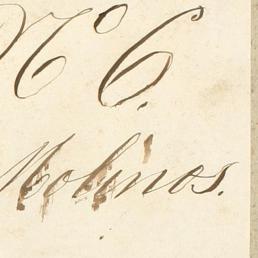 Nº 6.
Molinos.